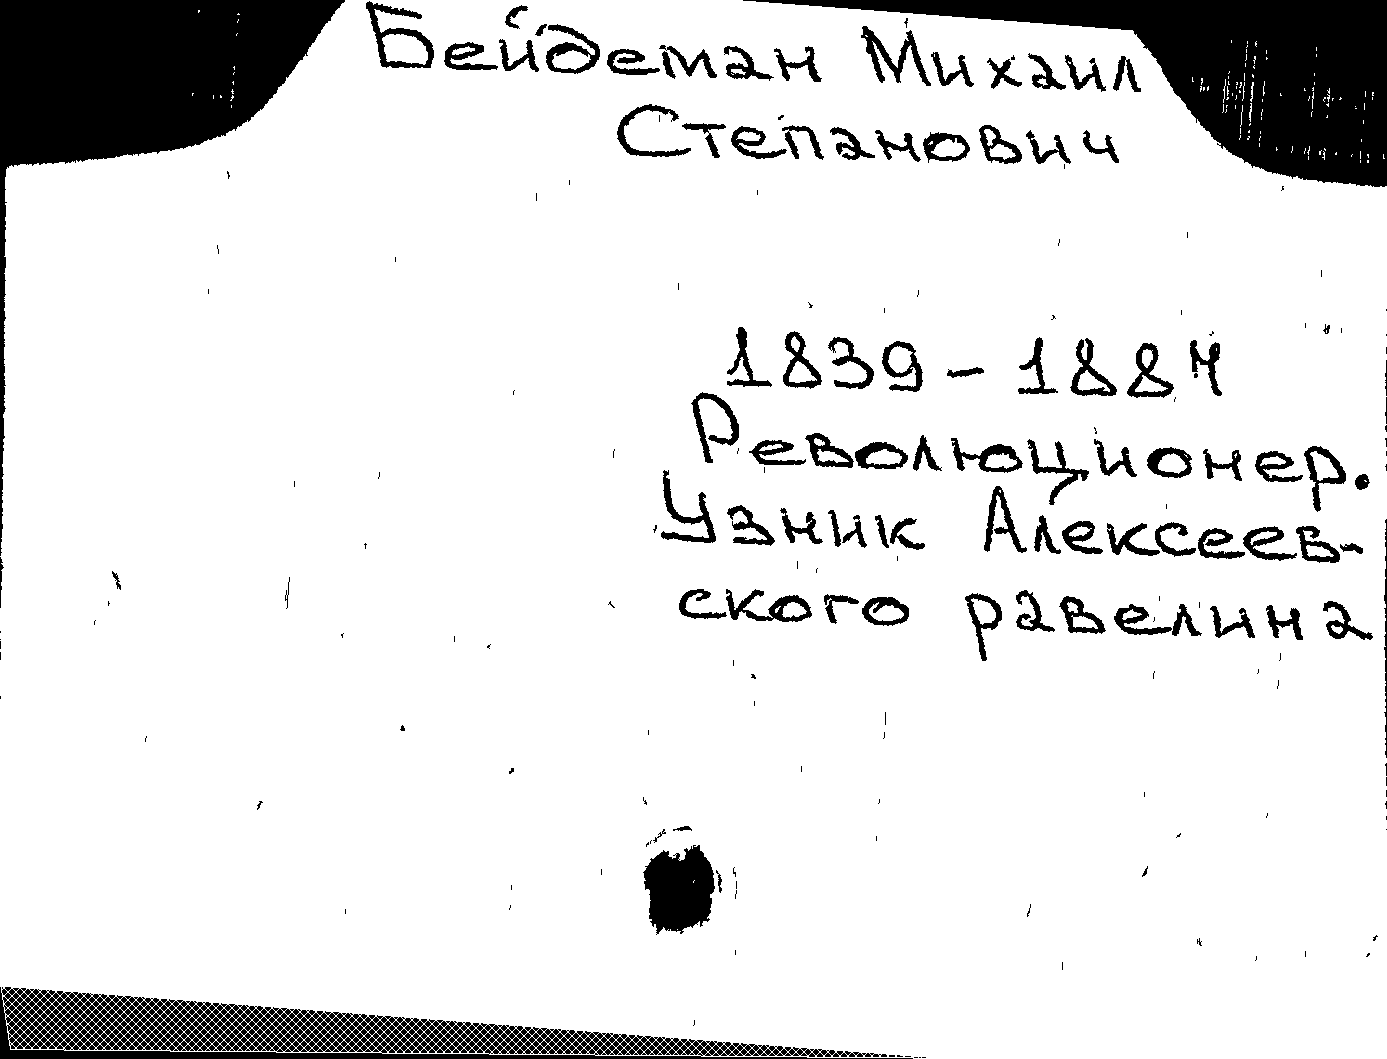 Бейдеман Михаил
Степанович
1839-1887
Революционер.
Узник Алексеев-
ского равелина